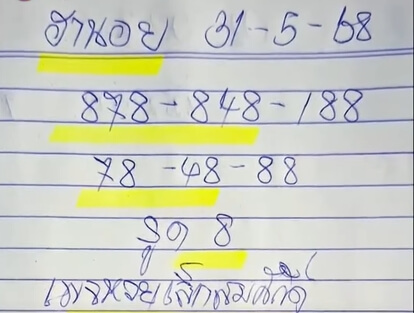 ฮานอย 31-5-68
878-848-188
78-48-88
รูด 8